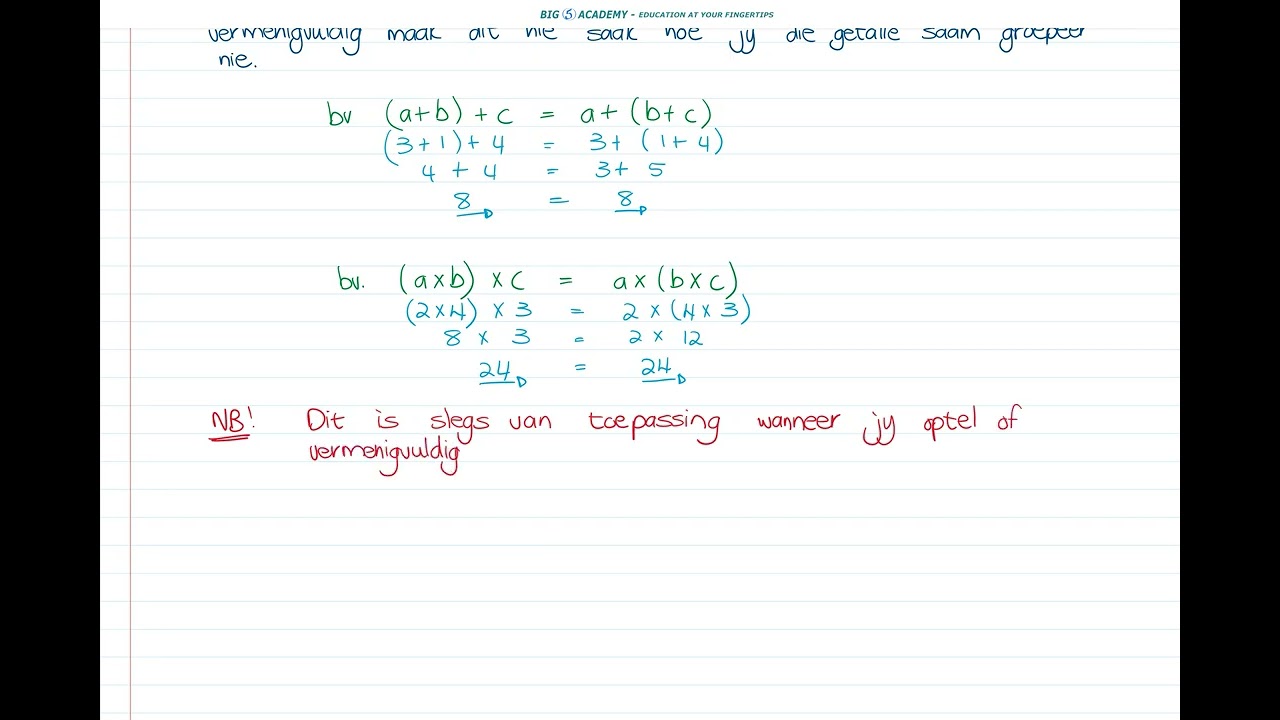 BIG 5 ACADEMY - EDUCATION AT YOUR FINGERTIPS
vermenigvuldig maak dit nie saak hoe jy die getalle saam groepeer
nie.
bv (a+b) + c = a + (b + c)
(3 + 1) + 4 = 3 + (1 + 4)
4 + 4 = 3 + 5
8 = 8
bv. (a x b) x c = a x (b x c)
(2 x 4) x 3 = 2 x (4 x 3)
8 x 3 = 2 x 12
24 = 24
NB! Dit is slegs van toepassing wanneer jy optel of
vermenigvuldig